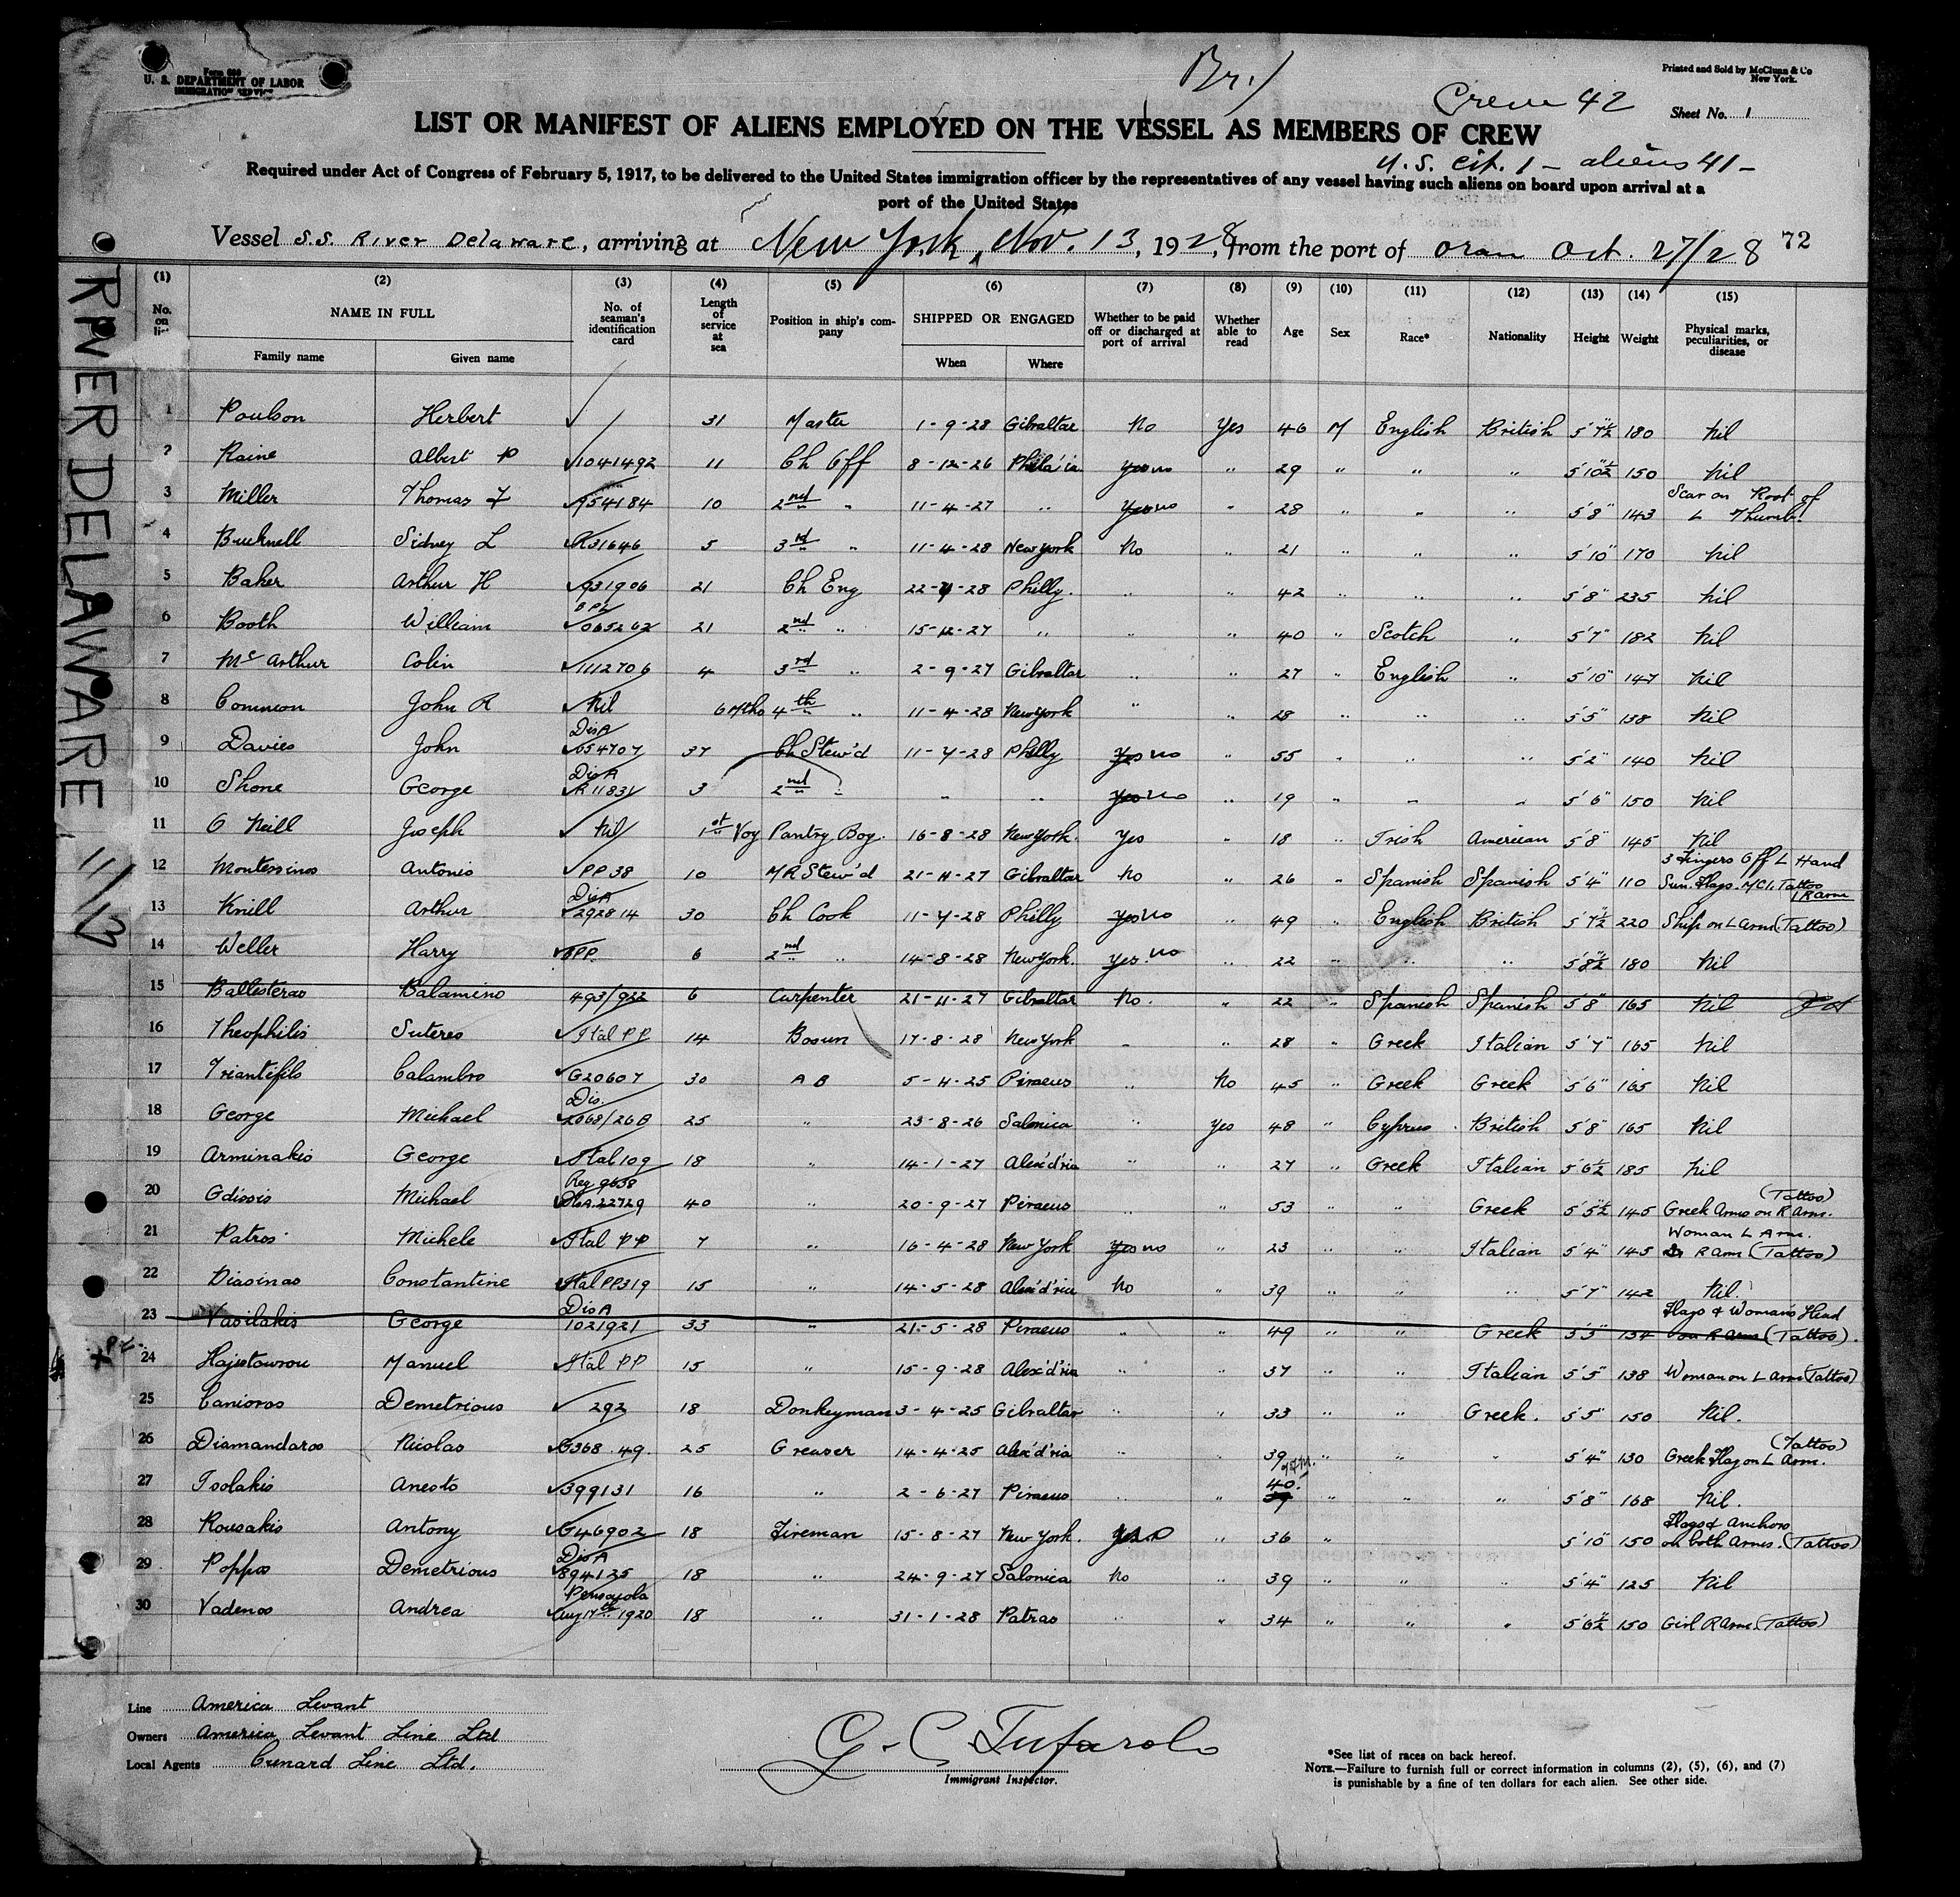 Form 680
U. S. DEPARTMENT OF LABOR
IMMIGRATION SERVICE
Br.
Printed and Sold by McClunn & Co
New York.
Crew 42
Sheet No. 1
LIST OR MANIFEST OF ALIENS EMPLOYED ON THE VESSEL AS MEMBERS OF CREW
U.S. Cit. 1 - aliens 41 -
Required under Act of Congress of February 5, 1917, to be delivered to the United States immigration officer by the representatives of any vessel having such aliens on board upon arrival at a
port of the United States
Vessel S.S. River Delaware, arriving at New York, Nov. 13, 1928, from the port of Oran Oct. 27/28 72
RIVER DELAWARE 11/13
(1) (2) (3) (4) (5) (6) (7) (8) (9) (10) (11) (12) (13) (14) (15)
No. on list NAME IN FULL Family name Given name No. of seaman's identification card Length of service at sea Position in ship's company SHIPPED OR ENGAGED When Where Whether to be paid off or discharged at port of arrival Whether able to read Age Sex Race* Nationality Height Weight Physical marks, peculiarities, or disease
1 Poulson Herbert 31 Master 1-9-28 Gibraltar No Yes 46 M English British 5'7½" 180 Nil
2 Raine Albert P 1041492 11 Ch Off 8-12-26 Phila'ia Yes no " 29 " " " 5'10½" 150 Nil
3 Miller Thomas F 954184 10 2nd " 11-4-27 " Yes no " 28 " " " 5'8" 143 Scar on Root of L Thumb
4 Bucknell Sidney L R31646 5 3rd " 11-4-28 New York No " 21 " " " 5'10" 170 Nil
5 Baker Arthur H 931906 21 Ch Eng 22-4-28 Philly. " " 42 " " " 5'8" 235 Nil
6 Booth William 065262 21 2nd " 15-12-27 " " " 40 " Scotch " 5'7" 182 Nil
7 McArthur Colin 1112706 4 3rd " 2-9-27 Gibraltar " " 27 " English " 5'10" 147 Nil
8 Common John R Nil 6 Mths 4th " 11-4-28 New York " " 28 " " " 5'5" 138 Nil
9 Davies John Dis A 654707 37 Ch Stew'd 11-7-28 Philly Yes no " 55 " " " 5'2" 140 Nil
10 Shone George Dis A R11831 3 2nd " " " Yes no " 19 " " " 5'6" 150 Nil
11 O Neill Joseph Nil 1st Voy Pantry Boy. 16-8-28 New York. Yes " 18 " Irish American 5'8" 145 Nil
12 Montesinos Antonio PP 38 10 MR Stew'd 21-11-27 Gibraltar No " 26 " Spanish Spanish 5'4" 110 3 Fingers Off L Hand Sun. Flags. MCI. Tattoo R Arm
13 Knill Arthur Dis A 292814 30 Ch Cook 11-7-28 Philly Yes no " 49 " English British 5'7½" 220 Ship on L Arm. (Tattoo)
14 Weller Harry BPP. 6 2nd " 14-8-28 New York. Yes. no " 22 " " " 5'8½" 180 Nil
15 Ballesteras Balamino 493/922 6 Carpenter 21-11-27 Gibraltar No. " 22 " Spanish Spanish 5'8" 165 Nil
16 Theophilis Suteres Ital PP 14 Bosun 17-8-28 New York " " 28 " Greek Italian 5'7" 165 Nil
17 Triantifilo Calambro G20607 30 A B 5-11-25 Piraeus " No 45 " Greek Greek 5'6" 165 Nil
18 George Michael Dis. 2068/26B 25 " 23-8-26 Salonica " Yes 48 " Cyprus British 5'8" 165 Nil
19 Arminakis George Ital 109 18 " 14-1-27 Alex'd'ria " " 27 " Greek Italian 5'6½ 185 Nil
20 Gdisis Michael Reg 9658 Dis A. 22729 40 " 20-9-27 Piraeus " " 53 " " Greek 5'5½" 145 Greek Arms on R Arm. (Tattoo)
21 Patros Michele Ital PP 7 " 16-4-28 New York Yes no " 23 " " Italian 5'4" 145 Woman L Arm. R Arm (Tattoo)
22 Diasinas Constantine Ital PP319 15 " 14-5-28 Alex'd'ria No " 39 " " " 5'7" 142 Nil.
23 Vasilakis George Dis A 1021921 33 " 21-5-28 Piraeus " " 49 " " Greek 5'5" 154 Flags & Womans Head on R Arm (Tattoo).
24 Hajistavrou Manuel Ital PP 15 " 15-9-28 Alex'd'ria " " 37 " " Italian 5'5" 138 Woman on L Arm (Tattoo)
25 Canioros Demetrious 292 18 Donkeyman 3-4-25 Gibraltar " " 33 " " Greek. 5'5" 150 Nil.
26 Diamandaros Nicolas G368.49. 25 Greaser 14-4-25 Alex'd'ria " " 39 " " " 5'4" 130 Greek Flag on L Arm. (Tattoo)
27 Tsolakis Anesto 399131 16 " 2-6-27 Piraeus " " 40. 39 " " " 5'8" 168 Nil.
28 Rousakis Antony G46902 18 Fireman 15-8-27 New York. Yes no " 36 " 5'10" 150 Flags & Anchors on both Arms. (Tattoo)
29 Poppas Demetrious Dis A 894125 18 " 24-9-27 Salonica No " 39 " " " 5'4" 125 Nil
30 Vadenos Andrea Aug 17th 1920 18 " 31-1-28 Patras " " 34 " " " 5'6½" 150 Girl R Arm. (Tattoo)
Line America Levant
Owners America Levant Line Ltd
Local Agents Cunard Line Ltd.
G. C. Tufarolo
Immigrant Inspector.
*See list of races on back hereof.
NOTE.—Failure to furnish full or correct information in columns (2), (5), (6), and (7)
is punishable by a fine of ten dollars for each alien. See other side.